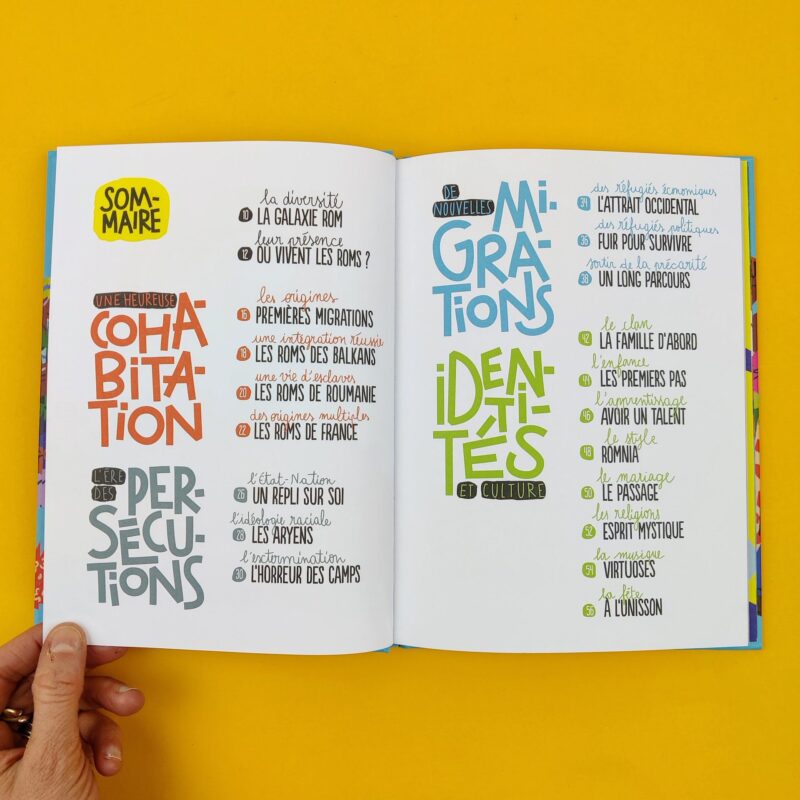 SOM-
MAIRE
la diversité
10 LA GALAXIE ROM
leur présence
12 OÙ VIVENT LES ROMS ?
UNE HEUREUSE
COHA-
BITA-
TION
les origines
16 PREMIÈRES MIGRATIONS
une intégration réussie
18 LES ROMS DES BALKANS
une vie d'esclaves
20 LES ROMS DE ROUMANIE
des origines multiples
22 LES ROMS DE FRANCE
L'ÈRE
DES
PER-
SÉCU-
TIONS
l'état-Nation
26 UN REPLI SUR SOI
l'idéologie raciale
28 LES ARYENS
l'extermination
30 L'HORREUR DES CAMPS
DE
NOUVELLES
MI-
GRA-
TIONS
des réfugiés économiques
34 L'ATTRAIT OCCIDENTAL
des réfugiés politiques
36 FUIR POUR SURVIVRE
sortir de la précarité
38 UN LONG PARCOURS
IDEN-
TI-
TÉS
ET CULTURE
le clan
42 LA FAMILLE D'ABORD
l'enfance
44 LES PREMIERS PAS
l'apprentissage
46 AVOIR UN TALENT
le style
48 ROMNIA
le mariage
50 LE PASSAGE
les religions
52 ESPRIT MYSTIQUE
la musique
54 VIRTUOSES
la fête
56 À L'UNISSON